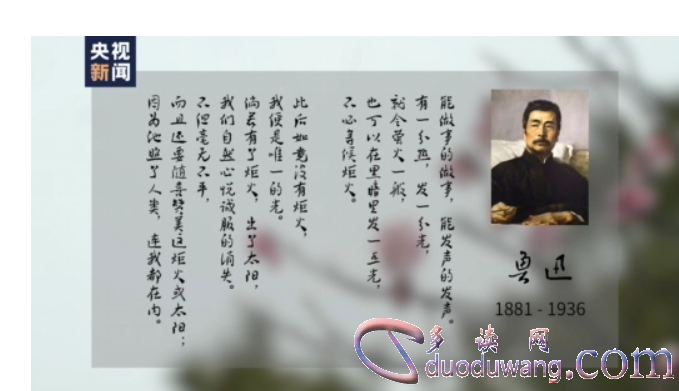 央视
新闻
能做事的做事，能发声的发声。
有一分热，发一分光，
就令萤火一般，
也可以在黑暗里发一点光，
不必等候炬火。
此后如竟没有炬火，
我便是唯一的光。
倘若有了炬火，出了太阳，
我们自然心悦诚服的消失。
不但毫无不平，
而且还要随喜赞美这炬火或太阳；
因为他照了人类，连我都在内。
鲁迅
1881 - 1936
多读网
duoduwang.com